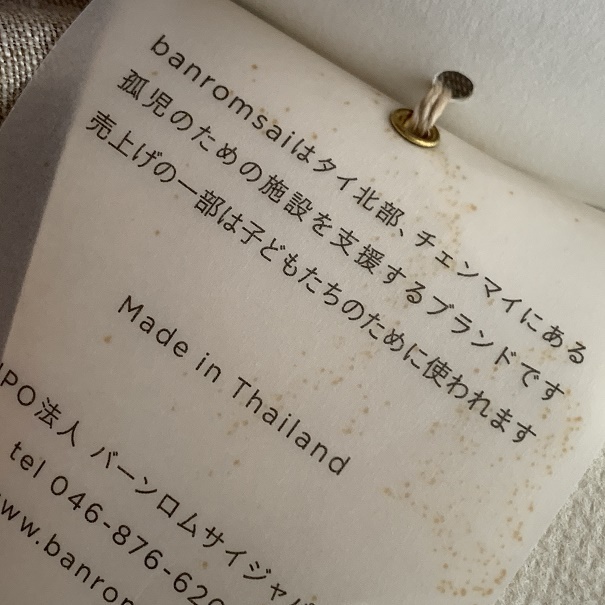 banromsaiはタイ北部、チェンマイにある
孤児のための施設を支援するブランドです
売上げの一部は子どもたちのために使われます
Made in Thailand
NPO法人 バーンロムサイジャパ
tel 046-876-620
www.banrom